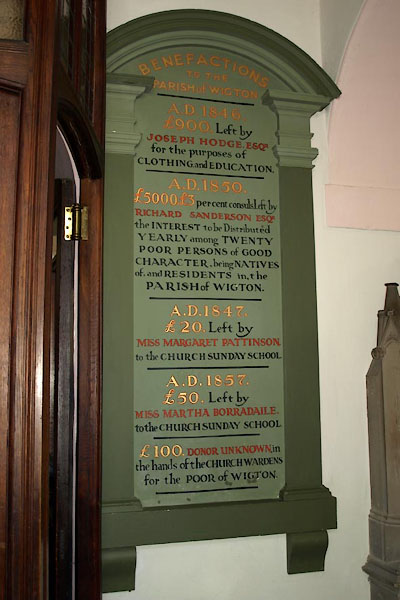 BENEFACTIONS
TO THE
PARISH of WIGTON
A.D. 1846.
£900. Left by
JOSEPH HODGE, ESQR.
for the purposes of
CLOTHING, and EDUCATION.
A.D. 1850.
£5000 £3 per cent consuls Left by
RICHARD SANDERSON ESQR.
the INTEREST to be Distributed
YEARLY among TWENTY
POOR PERSONS of GOOD
CHARACTER, being NATIVES
of, and RESIDENTS in, the
PARISH of WIGTON.
A.D. 1847.
£20. Left by
MISS MARGARET PATTINSON.
to the CHURCH SUNDAY SCHOOL
A.D. 1857.
£50. Left by
MISS MARTHA BORRADAILE.
to the CHURCH SUNDAY SCHOOL
£100. DONOR UNKNOWN, in
the hands of the CHURCH WARDENS
for the POOR of WIGTON.